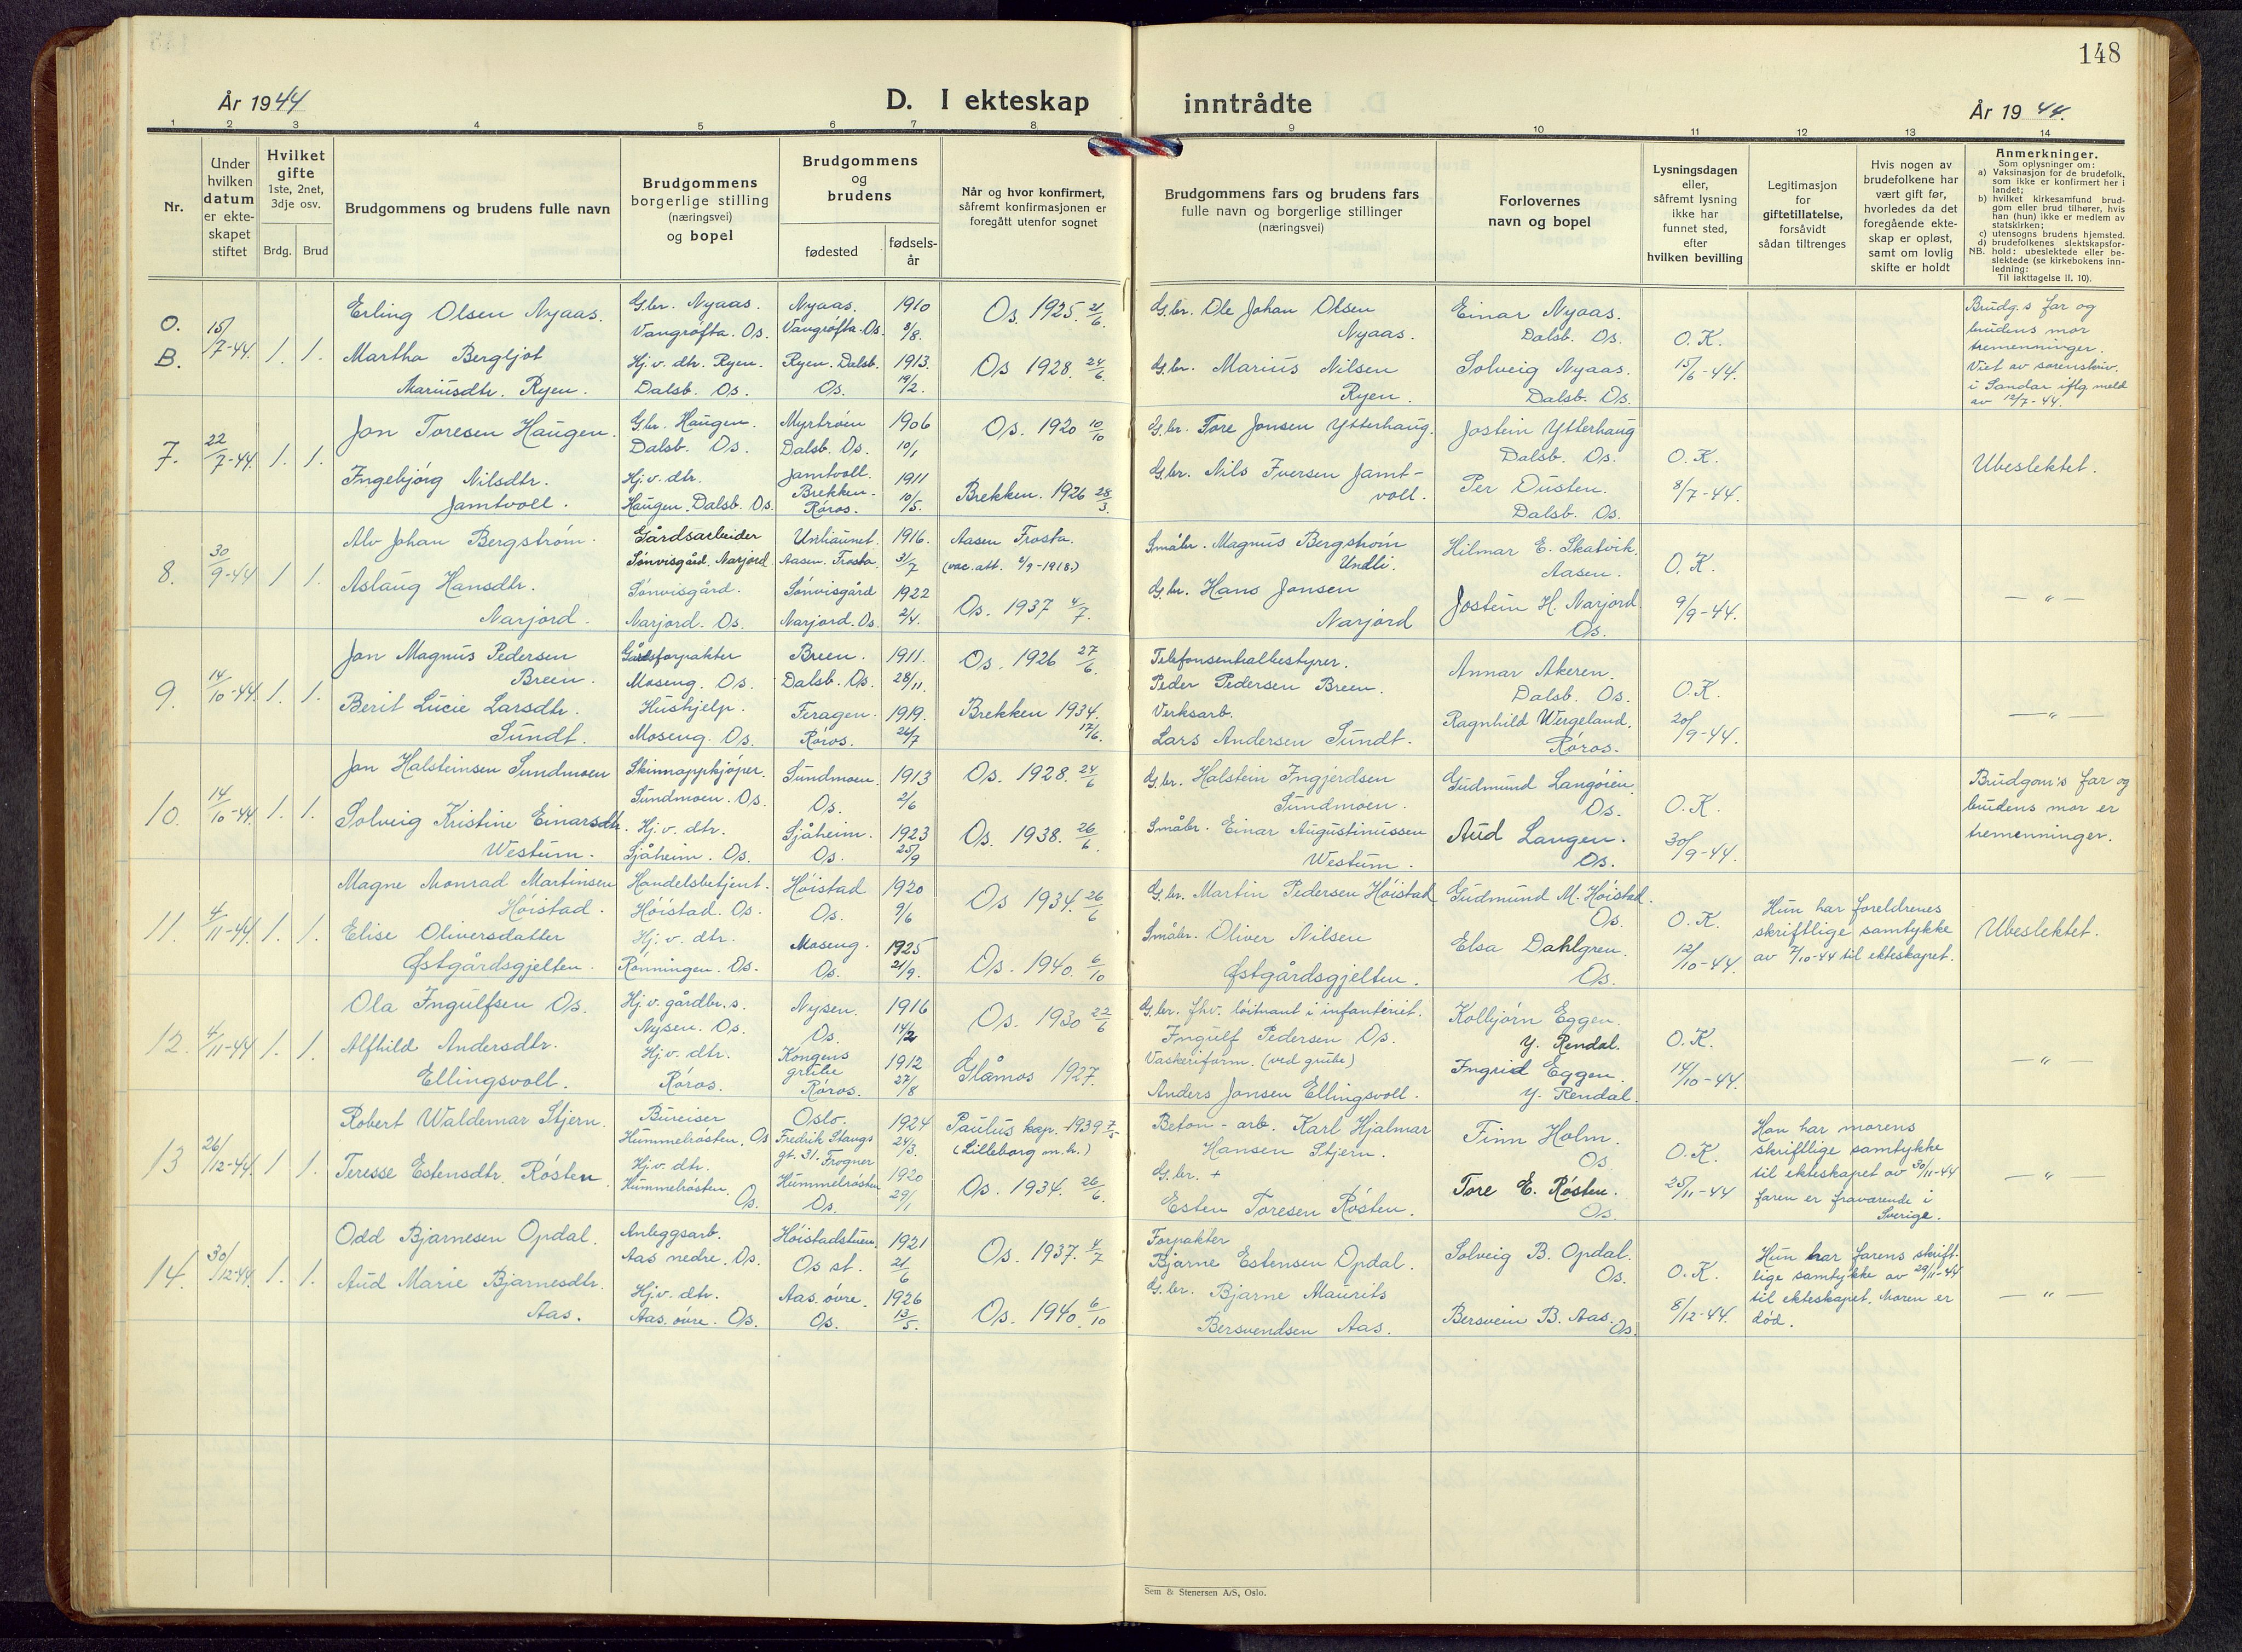 148
År 1944
D. I ekteskap inntrådte
År 1944.
1 2 3 4 5 6 7 8 9 10 11 12 13 14
Nr.
Under
hvilken
datum
er ekte-
skapet
stiftet
Hvilket
gifte
1ste, 2net,
3dje osv.
Brdg. Brud
Brudgommens og brudens fulle navn
Brudgommens
borgerlige stilling
(næringsvei)
og bopel
Brudgommens
og
brudens
fødested
fødsels-
år
Når og hvor konfirmert,
såfremt konfirmasjonen er
foregått utenfor sognet
Brudgommens fars og brudens fars
fulle navn og borgerlige stillinger
(næringsvei)
Forlovernes
navn og bopel
Lysningsdagen
eller,
såfremt lysning
ikke har
funnet sted,
efter
hvilken bevilling
Legitimasjon
for
giftetillatelse,
forsåvidt
sådan tiltrenges
Hvis nogen av
brudefolkene har
vært gift før,
hvorledes da det
foregående ekte-
skap er opløst,
samt om lovlig
skifte er holdt
Anmerkninger.
Som oplysninger om:
a) Vaksinasjon for de brudefolk,
som ikke er konfirmert her i
landet;
b) hvilket kirkesamfund brud-
gom eller brud tilhører, hvis
han (hun) ikke er medlem av
statskirken;
c) utensogns brudens hjemsted.
d) brudefolkenes slektskapsfor-
NB. hold: ubeslektede eller be-
slektede (se kirkebokens inn-
ledning:
Til iakttagelse II. 10).
O.
B.
15/7-44. 1. 1.
Erling Olsen Nyaas.
Martha Bergljot
Mariusdtr. Ryen.
G.br. Nyaas.
Vangrøfta. Os.
Hj.v. dtr. Ryen.
Dalsb. Os.
Nyaas.
Vangrøfta. Os.
Ryen. Dalsb.
Os.
1910
8/8.
1913.
19/2.
Os. 1925. 21/6.
Os 1928. 24/6.
G.br. Ole Johan Olsen
Nyaas.
G.br. Marius Nilsen
Ryen.
Einar Nyaas.
Dalsb. Os.
Solveig Nyaas.
Dalsb. Os.
O.K.
15/6-44.
Brudg.s far og
brudens mor
tremenninger.
Viet av sorenskriv.
i Sandar iflg meld
av 12/7-44.
7. 22/7-44. 1. 1.
Jon Toresen Haugen.
Ingebjørg Nilsdtr.
Jamtvoll.
G.br. Haugen.
Dalsb. Os.
Hj.v. dtr.
Haugen. Dalsb. Os.
Myrtrøen
Dalsb. Os.
Jamtvoll.
Brekken.
Røros.
1906
10/1
1911
10/5.
Os. 1920 10/10
Brekken. 1926 28/3.
G.br. Tore Jonsen Ytterhaug.
G.br. Nils Iversen Jamt-
voll.
Jostein Ytterhaug
Dalsb. Os.
Per Dusten.
Dalsb. Os.
O.K.
8/7-44.
Ubeslektet.
8. 30/9-44 1 1.
Alv Johan Bergstrøm.
Aslaug Hansdtr.
Narjord.
Gårdsarbeider
Sønvisgård. Narjord.
Sønvisgård.
Narjord. Os.
Aasen. Frosta.
Sønvisgård
Narjord. Os.
1916.
31/7
1922
2/4.
Aasen Frosta.
(vac. att. 2/9-1918.)
Os. 1937 4/7.
Småbr. Magnus Bergstrøm
Undli.
G.br. Hans Jonsen
Narjord
Hilmar E. Skatvik.
Aasen.
Jostein H. Narjord.
Os.
O.K.
9/9-44.
— " —
9. 14/10-44. 1. 1.
Jon Magnus Pedersen
Breen.
Berit Lucie Larsdtr.
Sundt.
Gårdsforpakter
Moseng. Os.
Hushjelp.
Moseng. Os.
Breen.
Dalsb. Os.
Feragen.
Røros.
1911.
28/11.
1919.
26/7
Os. 1926 27/6.
Brekken 1934.
17/6.
Telefonsentralbestyrer.
Peder Pedersen Breen.
Verksarb.
Lars Andersen Sundt.
Annar Akeren.
Dalsb. Os.
Ragnhild Wergeland.
Røros.
O.K.
20/9-44.
— " —
10. 14/10-44. 1. 1.
Jon Halsteinsen Sundmoen
Solveig Kristine Einarsdtr.
Westum.
Skinnoppkjøper.
Sundmoen. Os.
Hj.v. dtr.
Sjåheim. Os.
Sundmoen.
Os.
Sjåheim.
Os.
1913
2/6
1923
25/9
Os. 1928. 24/6
Os. 1938. 26/6.
G.br. Halstein Ingjerdsen
Sundmoen.
Småbr. Einar Augustinussen
Westum.
Gudmund Langøien.
Os.
Aud Langen.
Os.
O.K.
30/9-44.
Brudgom's far og
brudens mor er
tremenninger.
11. 4/11-44. 1. 1.
Magne Monrad Martinsen
Høistad.
Elise Oliversdatter
Østgårdsgjelten.
Handelsbetjent.
Høistad. Os.
Hj.v. dtr.
Rønningen. Os.
Høistad
Os.
Moseng.
Os.
1920
9/6
1925
21/9.
Os 1934. 26/6
Os. 1940. 6/10
G.br. Martin Pedersen Høistad
Småbr. Oliver Nilsen
Østgårdsgjelten.
Gudmund M. Høistad.
Os.
Elsa Dahlgren.
Os.
O.K.
12/10-44.
Hun har foreldrenes
skriftlige samtykke
av 7/10-44 til ekteskapet.
Ubeslektet.
12. 4/11-44 1. 1.
Ola Ingulfsen Os.
Alfhild Andersdtr.
Ellingsvoll.
Hj.v. gårdbr.s.
Nysen. Os.
Hj.v. dtr.
Røros.
Nysen.
Os.
Kongens
grube
Røros.
1916
14/2
1912
27/8
Os. 1930 22/6
Glåmos 1927.
G.br. fhv. løitnant i infanteriet.
Ingulf Pedersen Os.
Vaskeriform. (ved grube)
Anders Jonsen Ellingsvoll.
Kolbjørn Eggen.
Y. Rendal.
Ingrid Eggen.
Y. Rendal.
O.K.
14/10-44.
— " —
13 26/12-44. 1 1.
Robert Waldemar Stjern.
Teresse Estensdtr. Røsten.
Bureiser
Hummelrøsten. Os
Hj.v. dtr.
Hummelrøsten.
Os.
Oslo.
Fredrik Stangs
gt. 31. Frogner
Hummelrøsten
Os.
1924
24/3.
1920
29/1
Paulus kap. 1939 7/5
(Lilleborg m.h.)
Os. 1934. 26/6.
Beton-arb. Karl Hjalmar
Hansen Stjern.
G.br. +
Esten Toresen Røsten.
Finn Holm.
Os
Tore E. Røsten.
Os.
O.K.
25/11-44
Han har morens
skriftlige samtykke
til ekteskapet av 30/11-44
faren er fraværende i
Sverige.
— " —
14. 30/12-44. 1. 1.
Odd Bjarnesen Opdal.
Aud Marie Bjarnesdtr.
Aas.
Anleggsarb.
Aas nedre. Os.
Hj.v. dtr.
Aas. øvre. Os.
Høistadstuen.
Os st.
Aas. øvre.
Os.
1921
21/6
1926
13/5.
Os. 1937. 4/7
Os. 1940. 6/10
Forpakter
Bjarne Estensen Opdal.
G.br. Bjarne Maurits
Bersvendsen Aas.
Solveig B. Opdal.
Os.
Bersvein B. Aas.
Os.
O.K.
8/12-44.
Hun har farens skrift-
lige samtykke av 29/11-44
til ekteskapet. Moren er
død.
— " —
Sem & Stenersen A/S, Oslo.